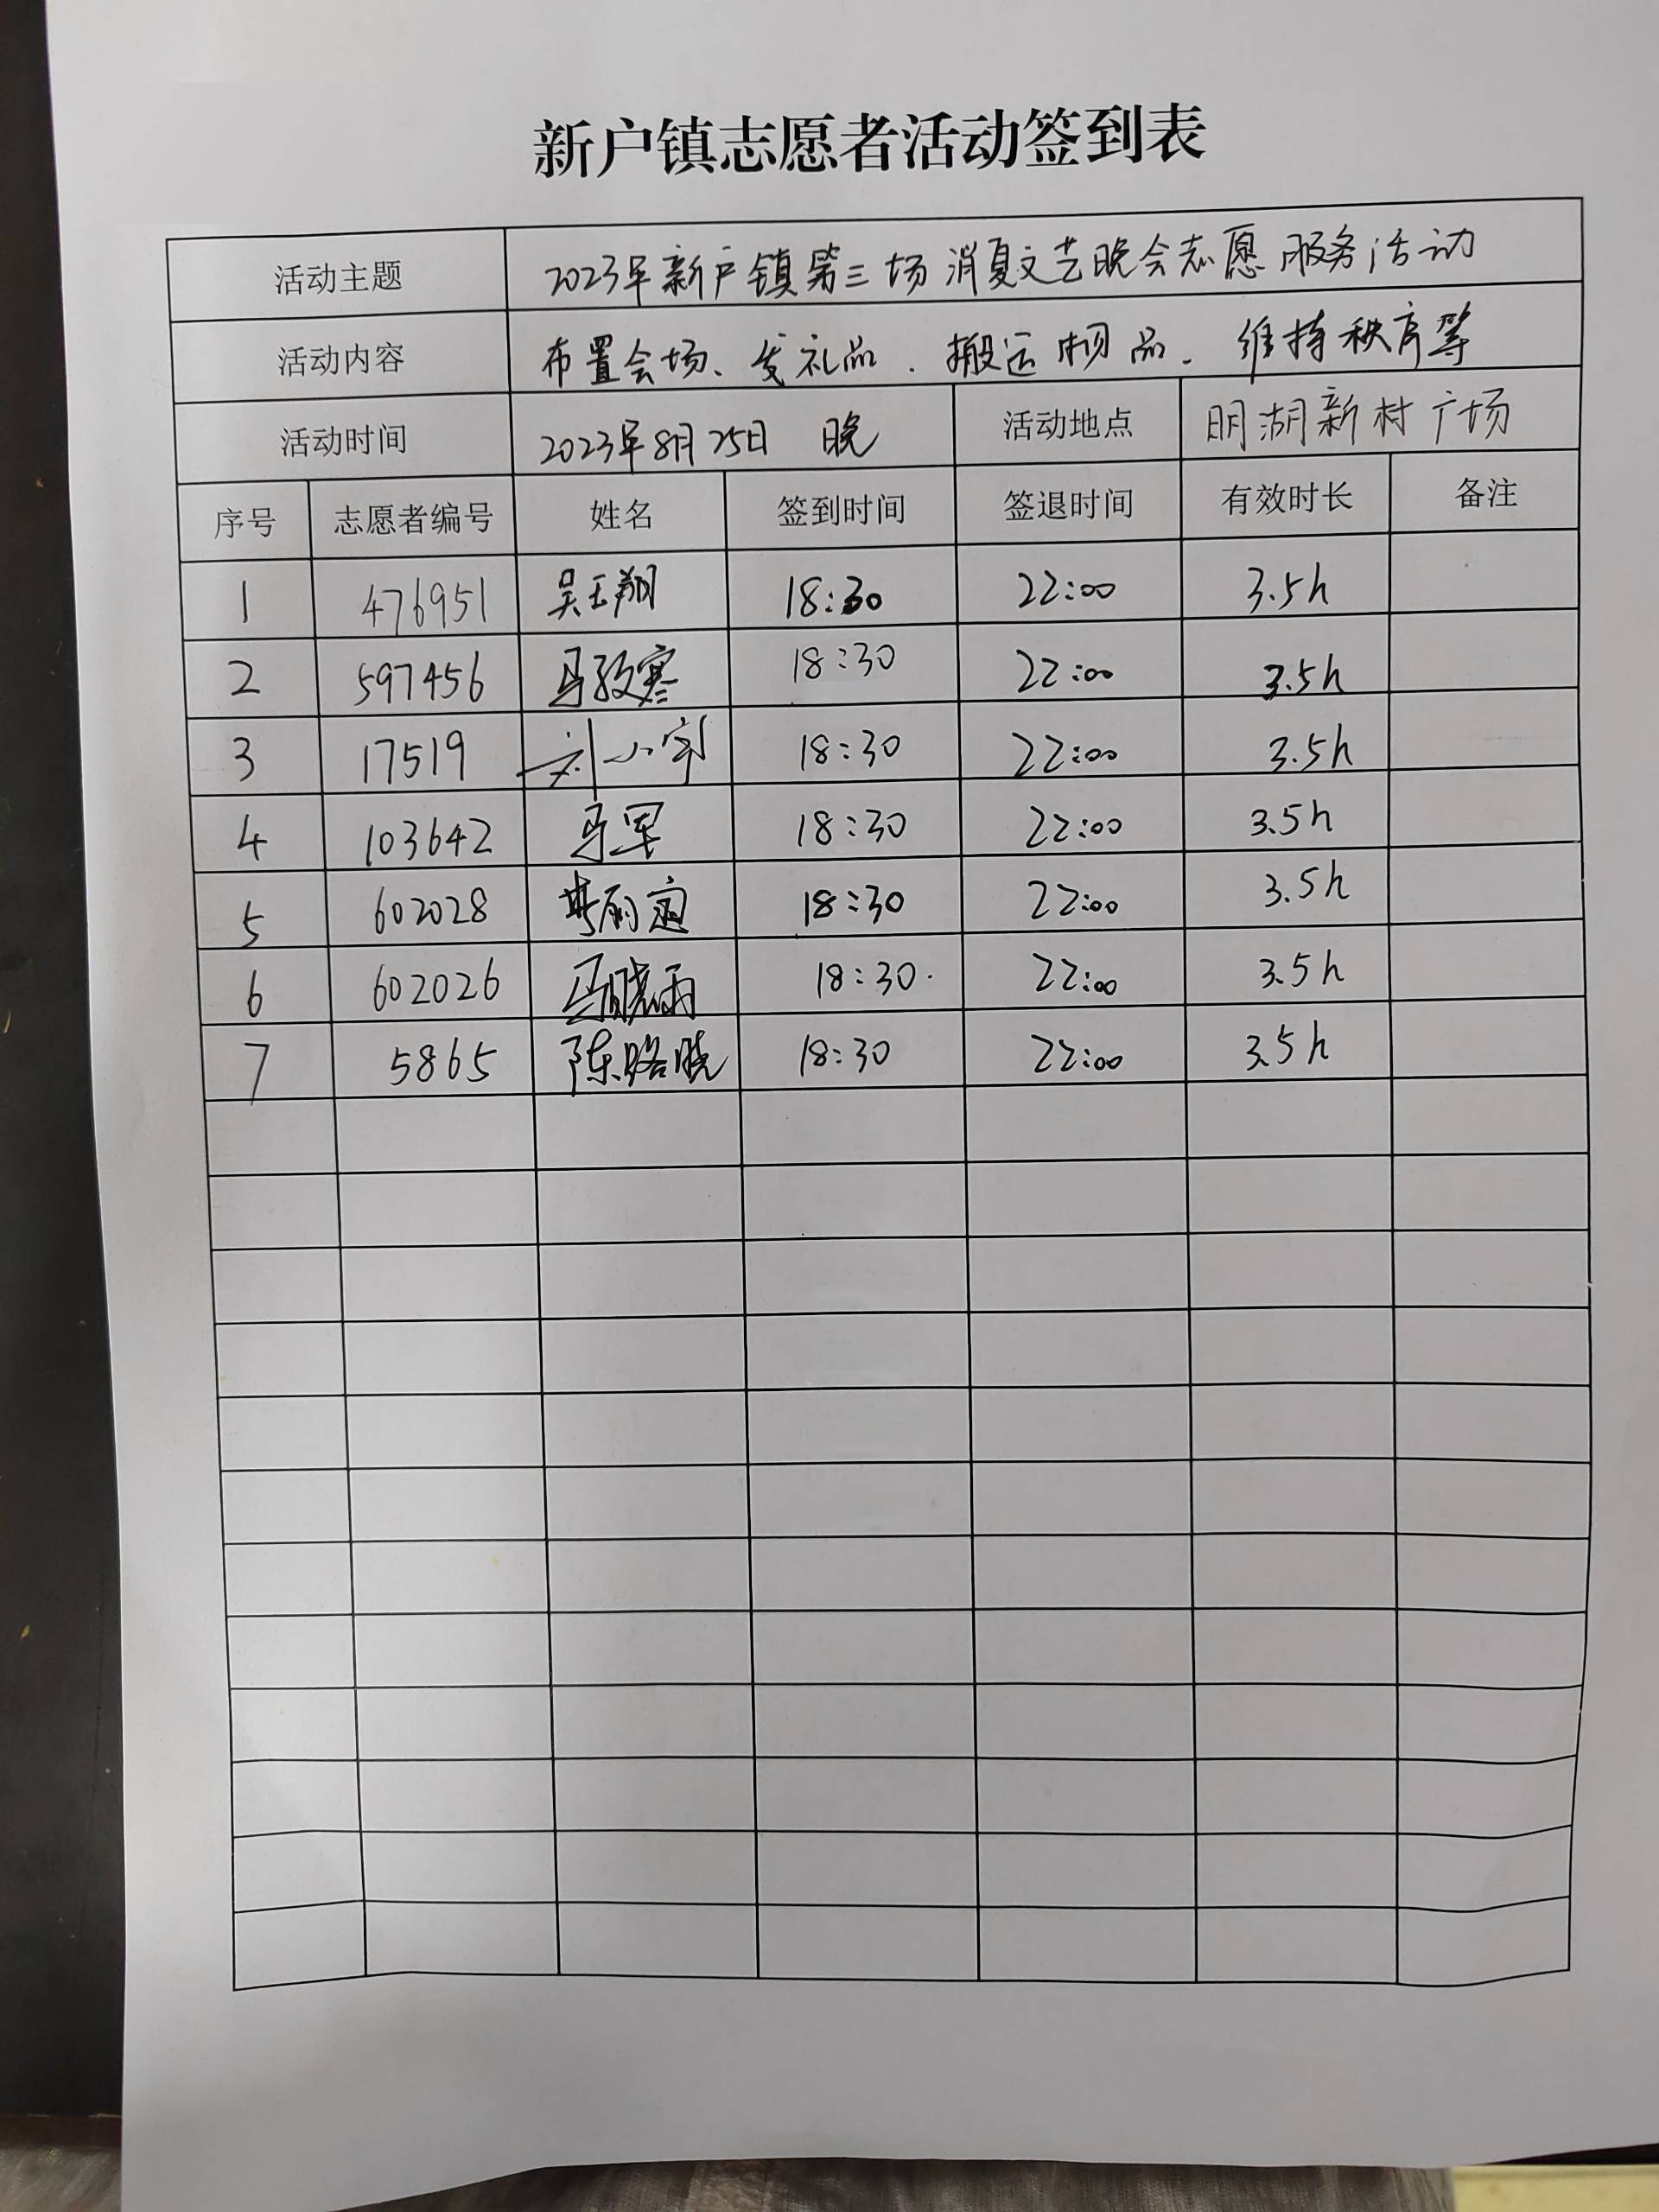 新户镇志愿者活动签到表
活动主题 2023年新户镇第三场消夏文艺晚会志愿服务活动
活动内容 布置会场、发礼品、搬运物品、维持秩序等
活动时间 2023年8月25日 晚 活动地点 明湖新村广场
序号 志愿者编号 姓名 签到时间 签退时间 有效时长 备注
1 476951 吴玉翔 18:30 22:00 3.5h
2 597456 18:30 22:00 3.5h
3 17519 刘小宁 18:30 22:00 3.5h
4 103642 马军 18:30 22:00 3.5h
5 602028 18:30 22:00 3.5h
6 602026 马晓雨 18:30. 22:00 3.5h
7 5865 陈晓 18:30 22:00 3.5h